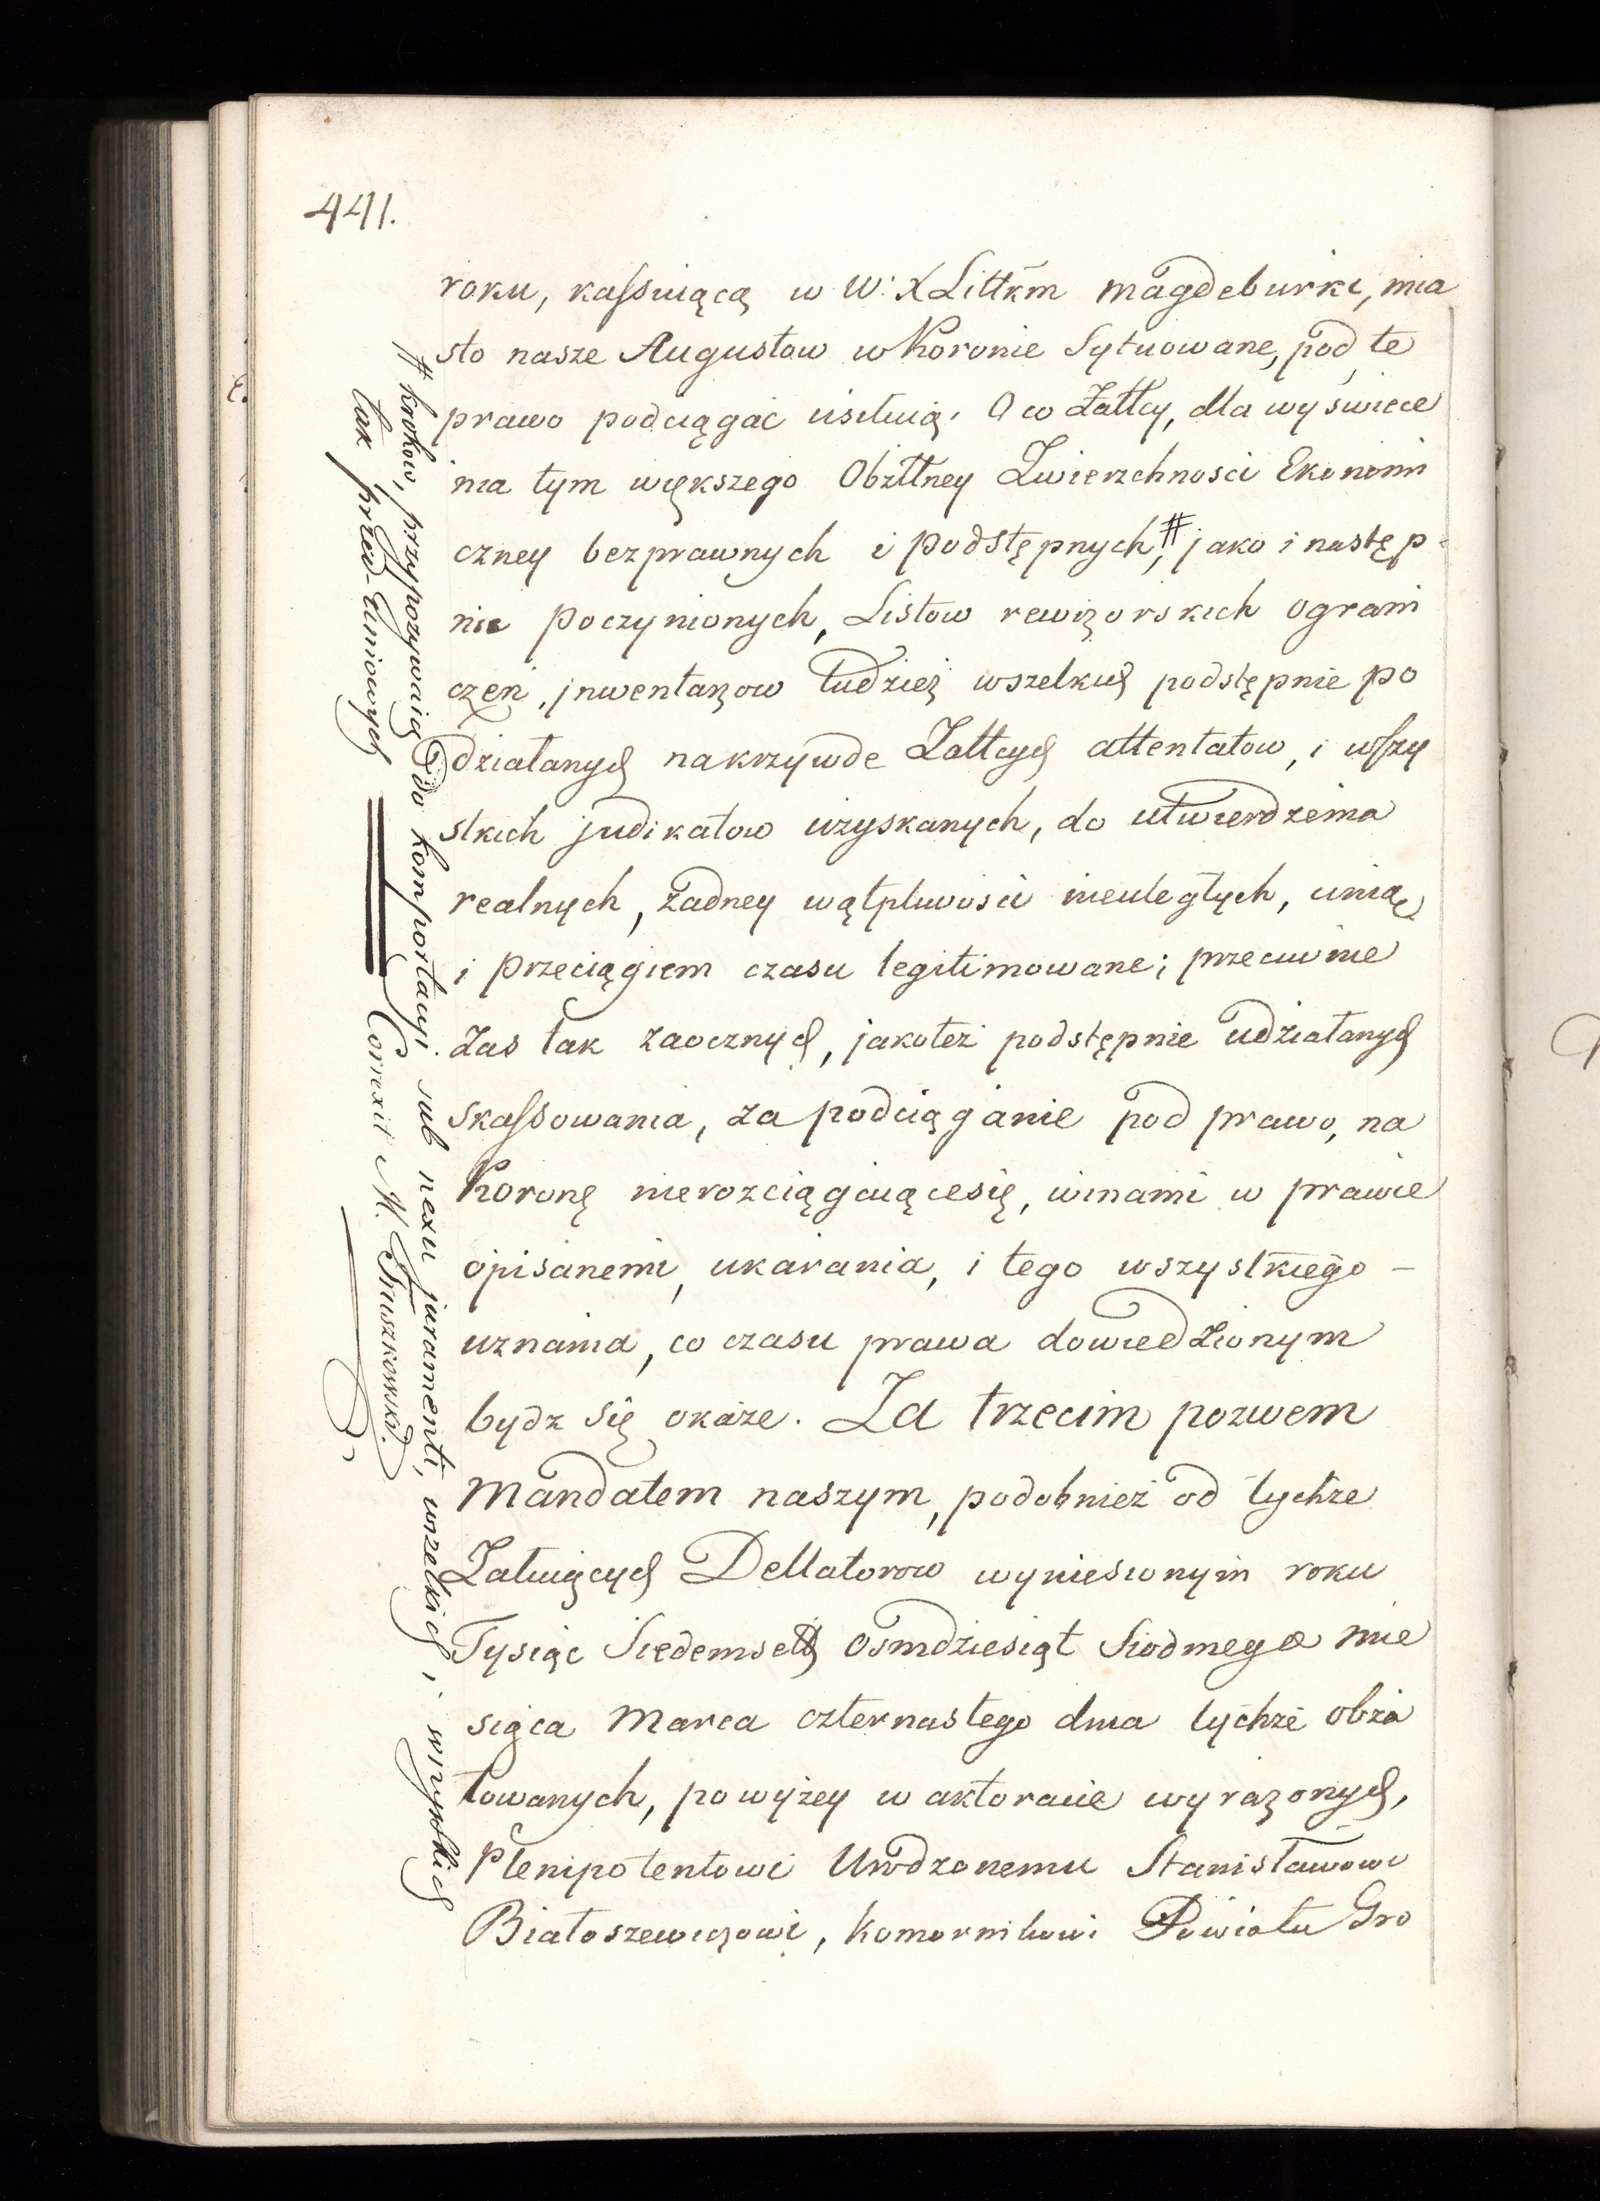 441.
roku, kassuiącą w W: X Littkm magdeburkę, mia
sto nasze Augustow w Koronie Sytuowane, pod te
prawo podciągać usiłuią. A w Załłcy, dla wyświece
nia tym większego Obżłłney Zwierzchnosci Ekonomi
czney bezprawnych i podstępnych,# jako i następ-
nie poczynionych, Listow rewizorskich ograni
czeń, jnwentarzow tudzież wszelkich podstępnie po
działanych na krzywdę Załłcych attentatow, i wszy
stkich judikatow uzyskanych, do utwierdzenia
realnych, żadney wątpliwości nieuległych, unią
i przeciągiem czasu legitimowane; przeciwnie
zas tak zaocznych, jakoteż podstępnie udziałanych
skassowania, za podciąganie pod prawo, na
Koronę nierozciągaiącesię, winami w prawie
opisanemi, ukarania, i tego wszystkiego -
uznania, co czasu prawa dowiedzionym
bydz się okaże. Za trzecim pozwem
Mandatem naszym, podobnież od tychże
Załuiących Dellatorow wyniesionym roku
Tysiąc Siedemset osmdziesiąt Siodmego mie
siąca Marca czternastego dnia tychże obża
łowanych, powyżey w aktoracie wyrażonych,
Plenipotentowi Urodzonemu Stanisławowi
Białoszewiczowi, Komornikowi Powiatu Gro
# krokow, przypozywaią do komportacyi sub nexu juramenti, wszelkich i wszystkich
tak przed-Uniowych
Correxit M. Truszkowski.